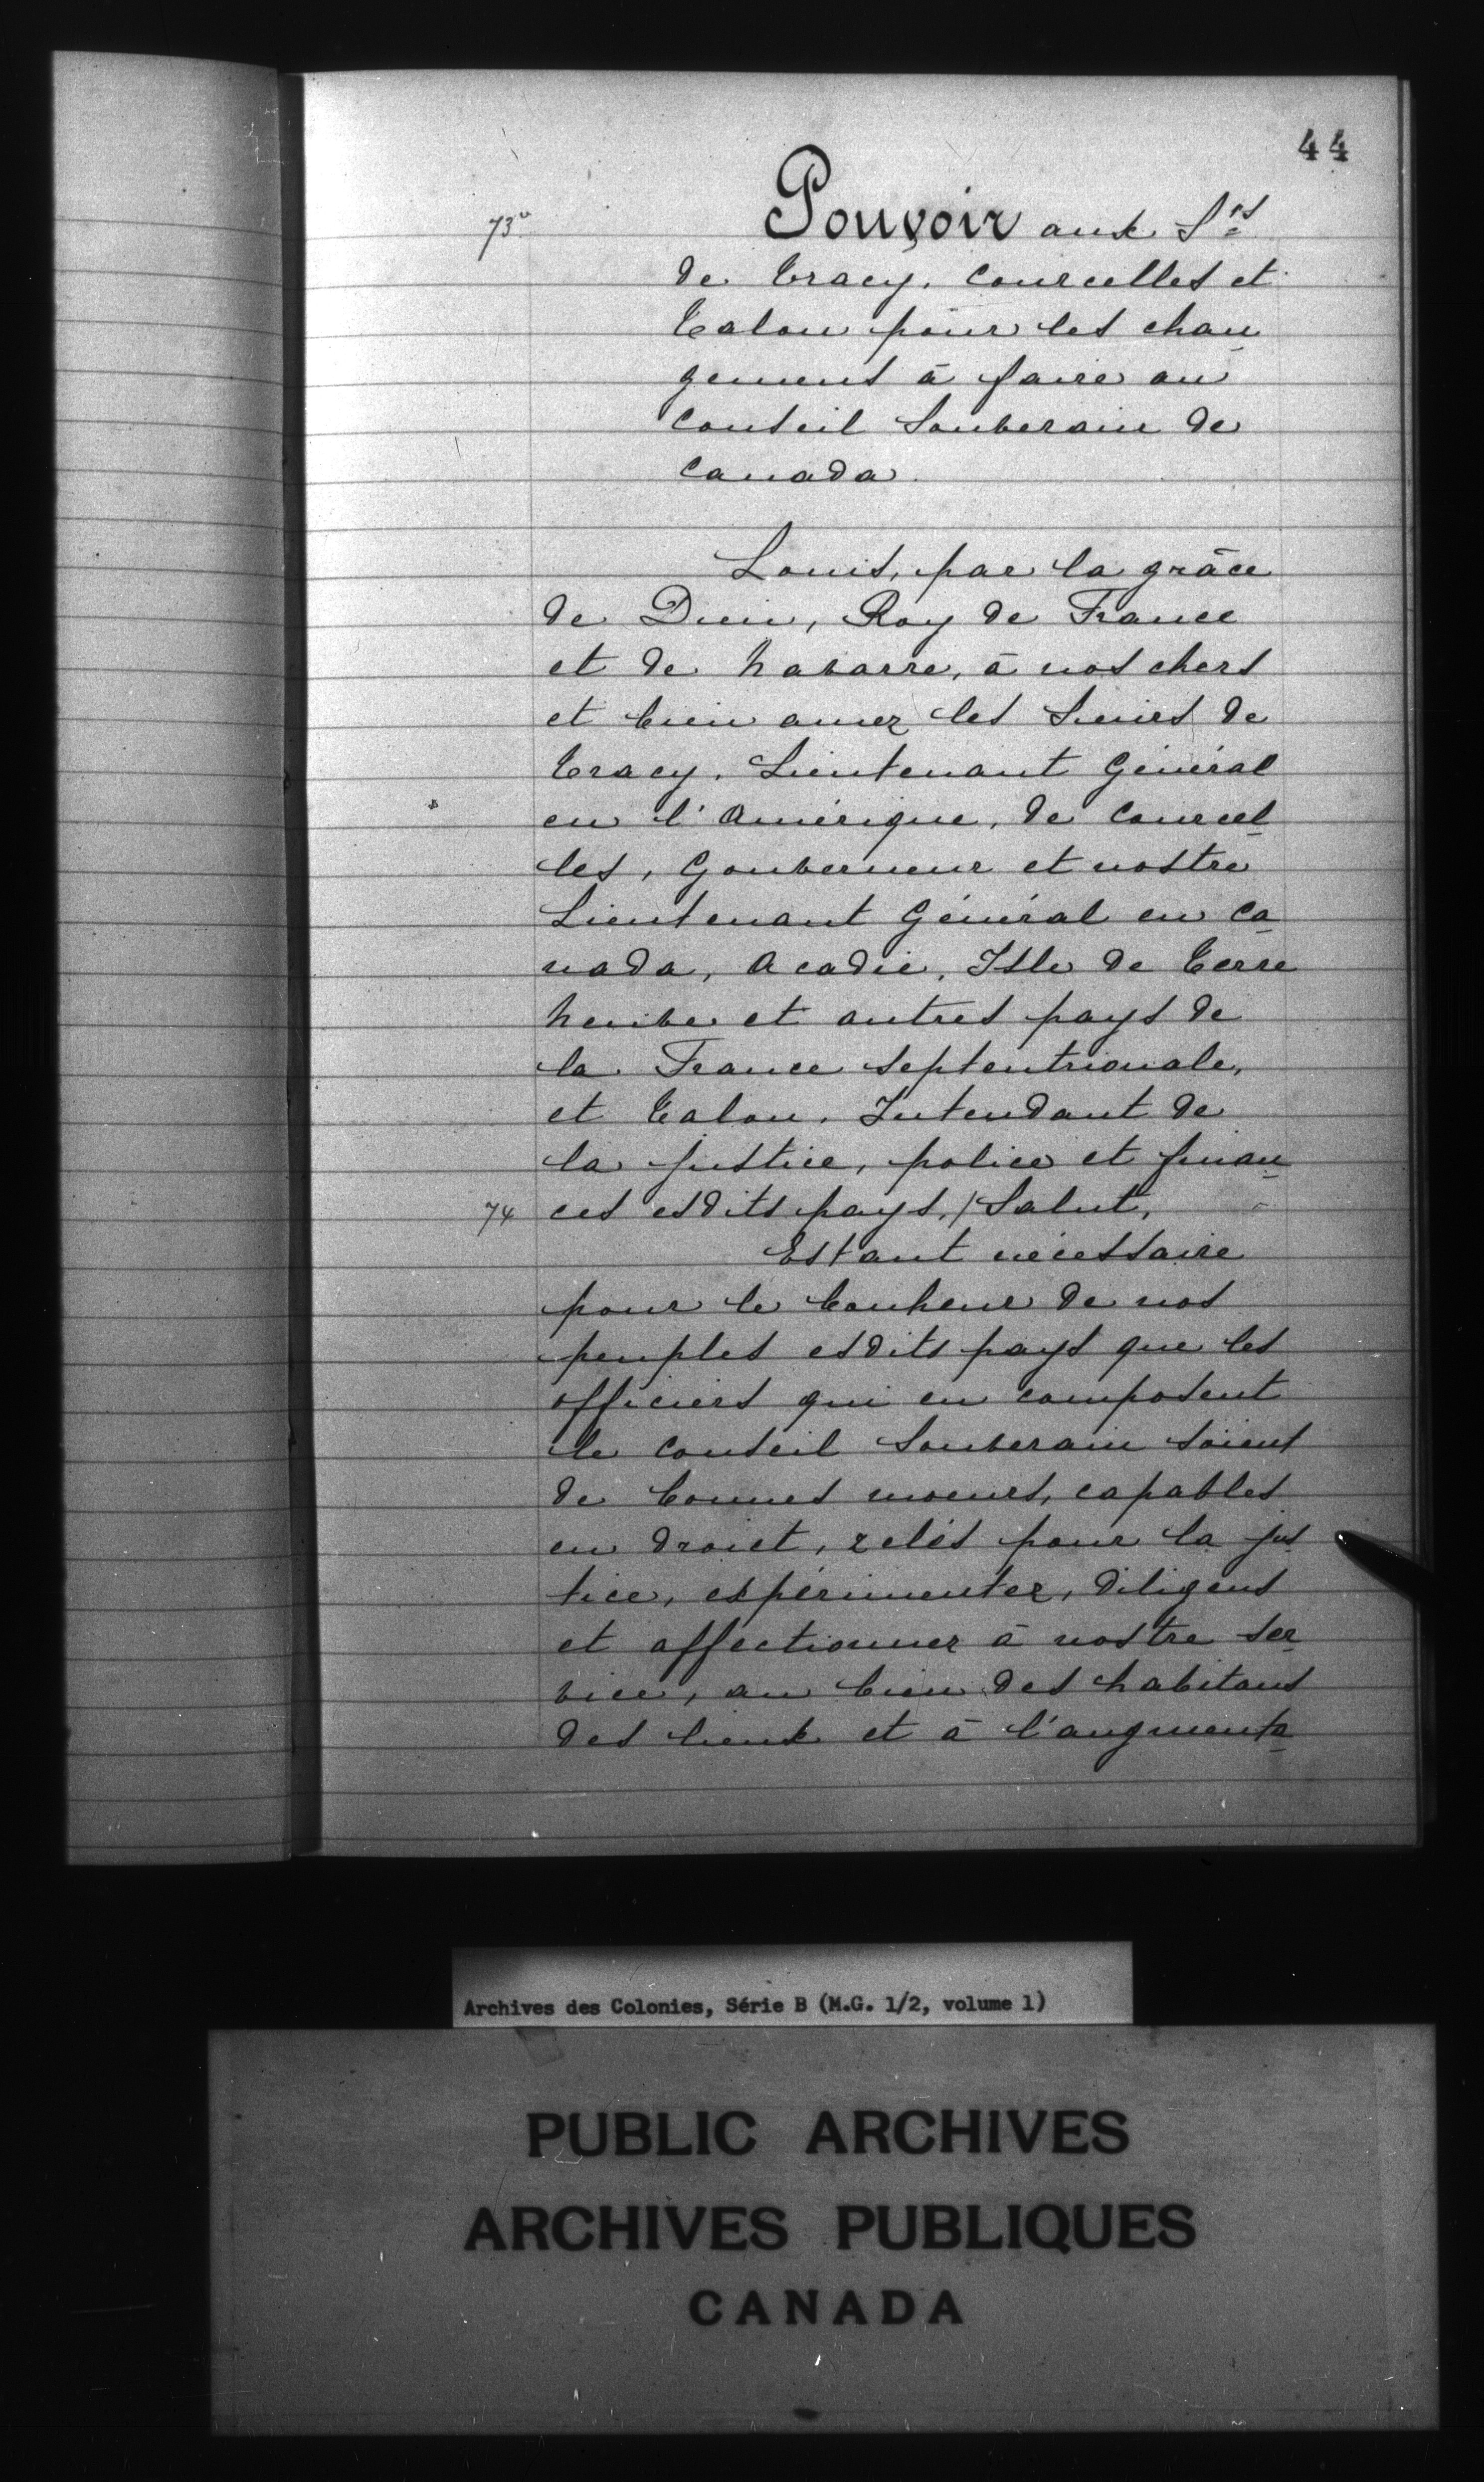 44
73v Pouvoir aux Srs
de Tracy, Courcelles et
Talon pour les chan
gement à faire au
Conseil Souverain de
Canada.
Louis, par la grâce
de Dieu, Roy de France
et de Navarre, à nos chers
et bien amez les Sieurs de
Tracy, Lieutenant Général
en l'Amérique, de Courcel
les, Gouverneur et nostre
Lieutenant Général en Ca
nada, Acadie, Isle de Terre
Neuve et autres pays de
la France septentrionale,
et Talon, Intendant de
la justice, police et finan
74 ces esdits pays,/Salut,
Estant nécessaire
pour le bonheur de nos
peuples esdits pays que les
officiers qui en composent
le Conseil Souverain soient
de bonnes moeurs, capables
en droict, zelés pour la jus
tice, expérimentez, diligens
et affectionnez à nostre ser
vice, au bien des habitans
des lieux et à l'augmenta
Archives des Colonies, Série B (M.G. 1/2, volume 1)
PUBLIC ARCHIVES
ARCHIVES PUBLIQUES
CANADA